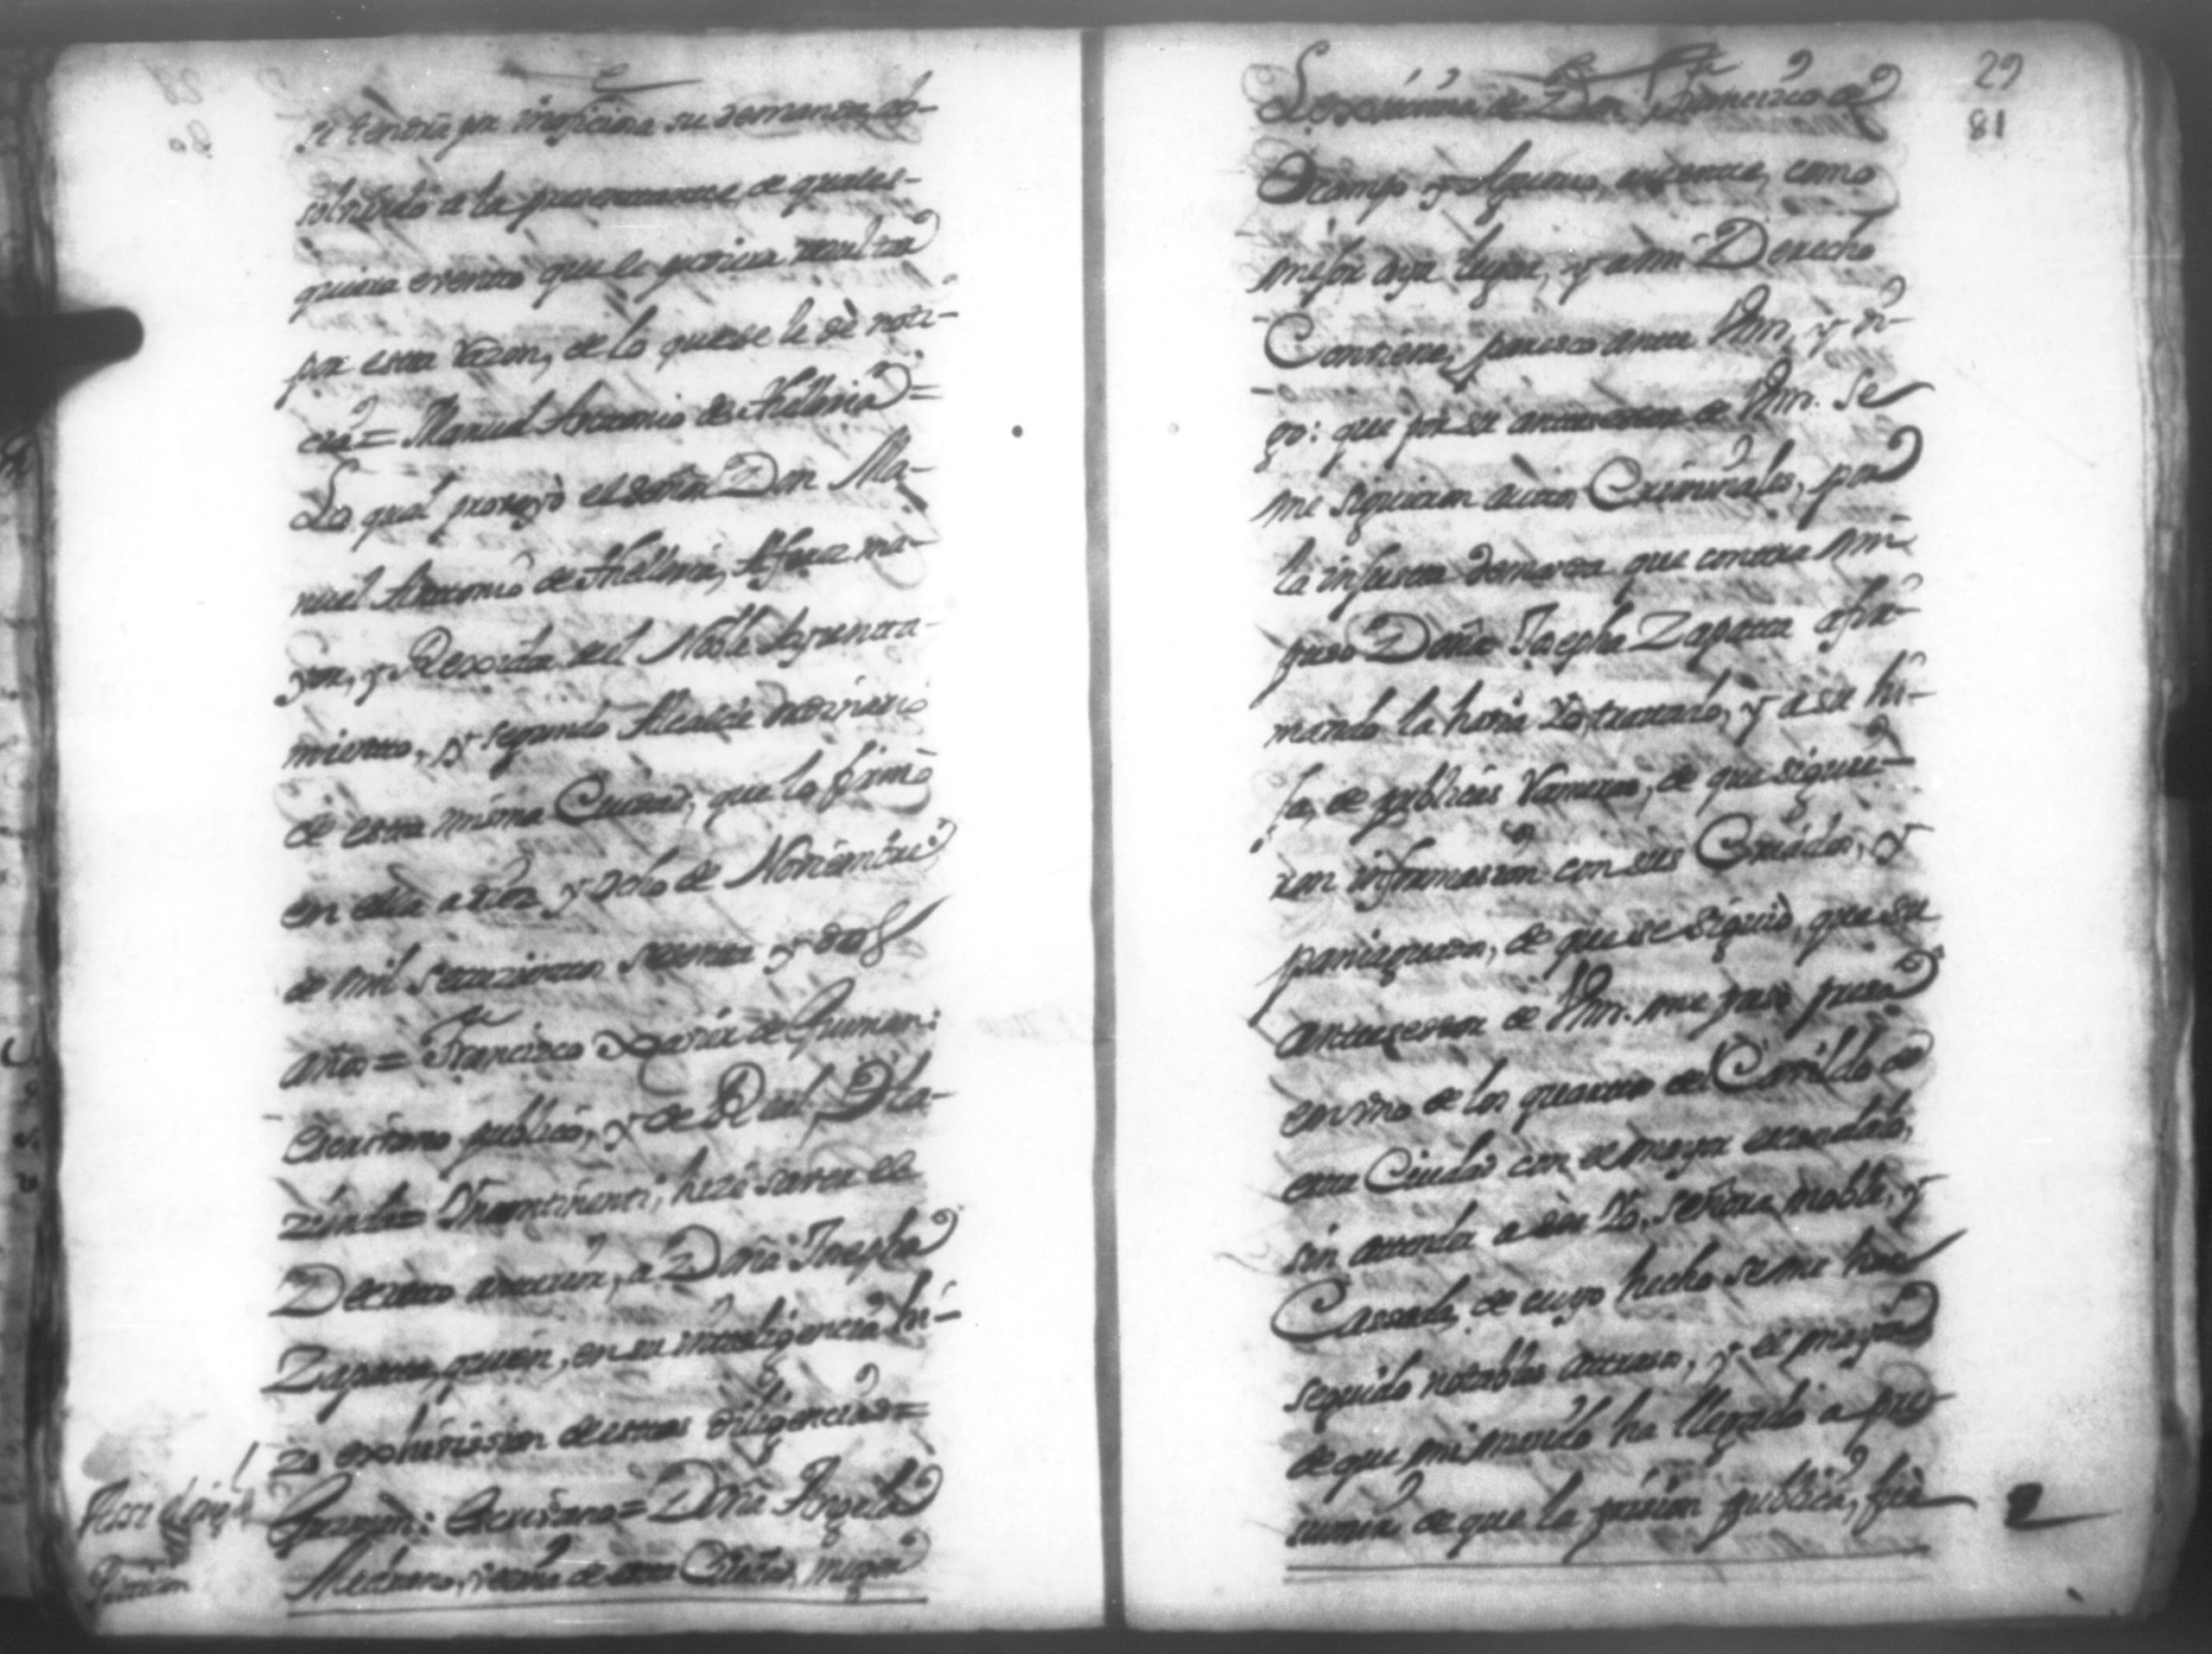 se tendrá por inoficiosa su demanda ab-
solviendo a la de quales-
quiera evento que le pudiera resultar
por esta razon, de lo que se le dè noti-
cia = Manuel Antonio de Thelleria =
Lo qual proveyò el señor Don Ma-
nuel Antonio de Thelleria, Alferez ma-
yor, y Rexidor del Noble Ayunta-
miento, y segundo Alcalde ordinario
de esta misma Ciudad, que lo firmò
en ella a diez y ocho de Noviembre
de mil setezientos setenta y dos
años = Francisco Xavier de Guzman:
Escrivano publico, y de Real Ha-
zienda = Yncontinenti, hize saver el
Decreto anterior, a Doña Josepha
Zapata, quien, en su inteligencia hi-
zo exhivision de estas diligencias =
Guzman: Escrivano = Doña Angela
Medrano, vecina de esta Ciudad, muger
Petticion
Lexitima de Don Francisco de
Ocampo y Aguero, ausente, como
mejor aya lugar, y a mi Derecho
Combiene, paresco ante Vm, y di-
go: que por el antecesor de Vm. Se
me siguieron autos Criminales, por
la injusta demanda que contra mi
puso Doña Josepha Zapata afir-
mando la havia Yo, tratado, y a su hi-
ja, de publicas Rameras, de que siguie-
ron informacion con sus Criados, y
paniaguados, de que se siguiò, que su
antecesor de Vm. me puso presa
en uno de los quartos del Cavildo de
esta Ciudad con el mayor escandalo,
sin atender a ser Yo, señora noble, y
Cassada, de cuyo hecho se me han
seguido notables atrasos, y el mayor
de que mi marido ha llegado a pre-
sumir de que la prision publica, fue
29
81